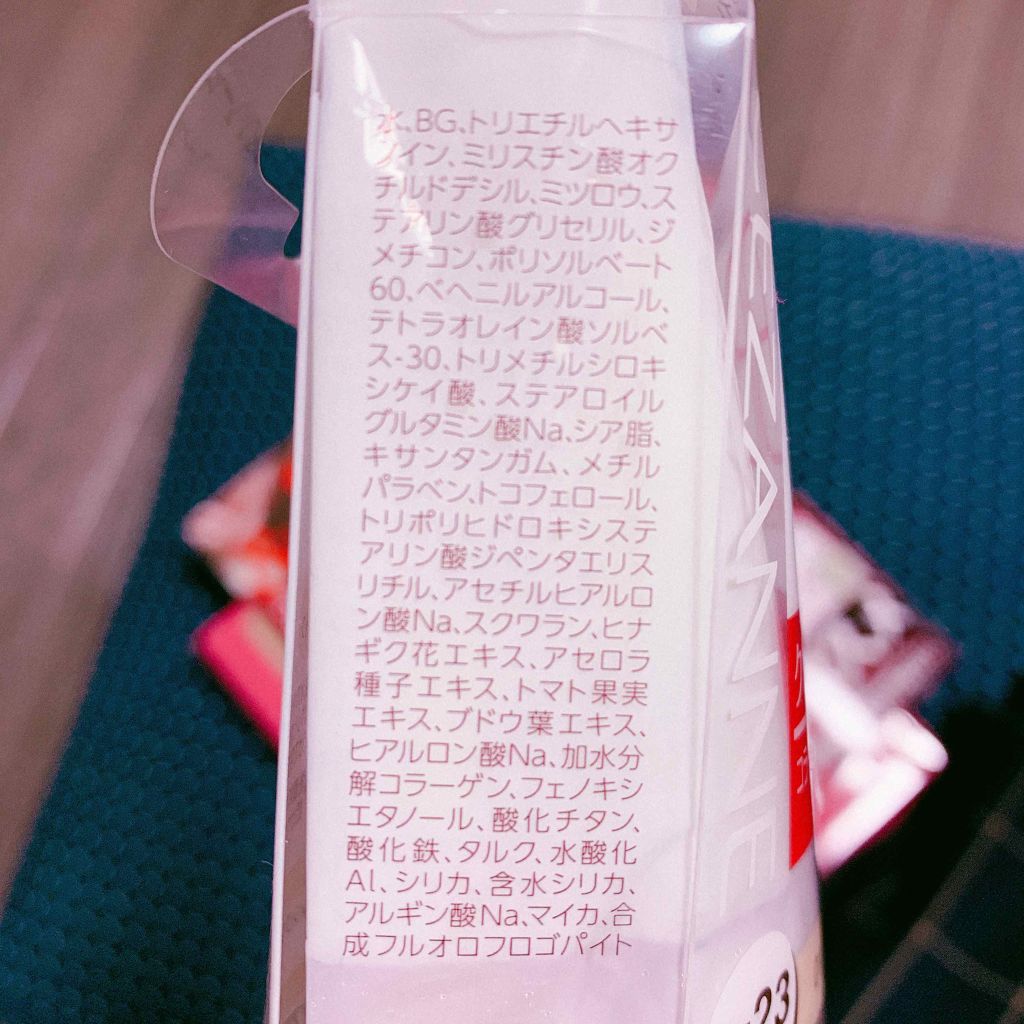 水、BG、トリエチルヘキサ
ノイン、ミリスチン酸オク
チルドデシル、ミツロウ、ス
テアリン酸グリセリル、ジ
メチコン、ポリソルベート
60、ベヘニルアルコール、
テトラオレイン酸ソルベ
ス-30、トリメチルシロキ
シケイ酸、ステアロイル
グルタミン酸Na、シア脂、
キサンタンガム、メチル
パラベン、トコフェロール、
トリポリヒドロキシステ
アリン酸ジペンタエリス
リチル、アセチルヒアルロ
ン酸Na、スクワラン、ヒナ
ギク花エキス、アセロラ
種子エキス、トマト果実
エキス、ブドウ葉エキス、
ヒアルロン酸Na、加水分
解コラーゲン、フェノキシ
エタノール、酸化チタン、
酸化鉄、タルク、水酸化
Al、シリカ、含水シリカ、
アルギン酸Na、マイカ、合
成フルオロフロゴパイト
EZANNE
23